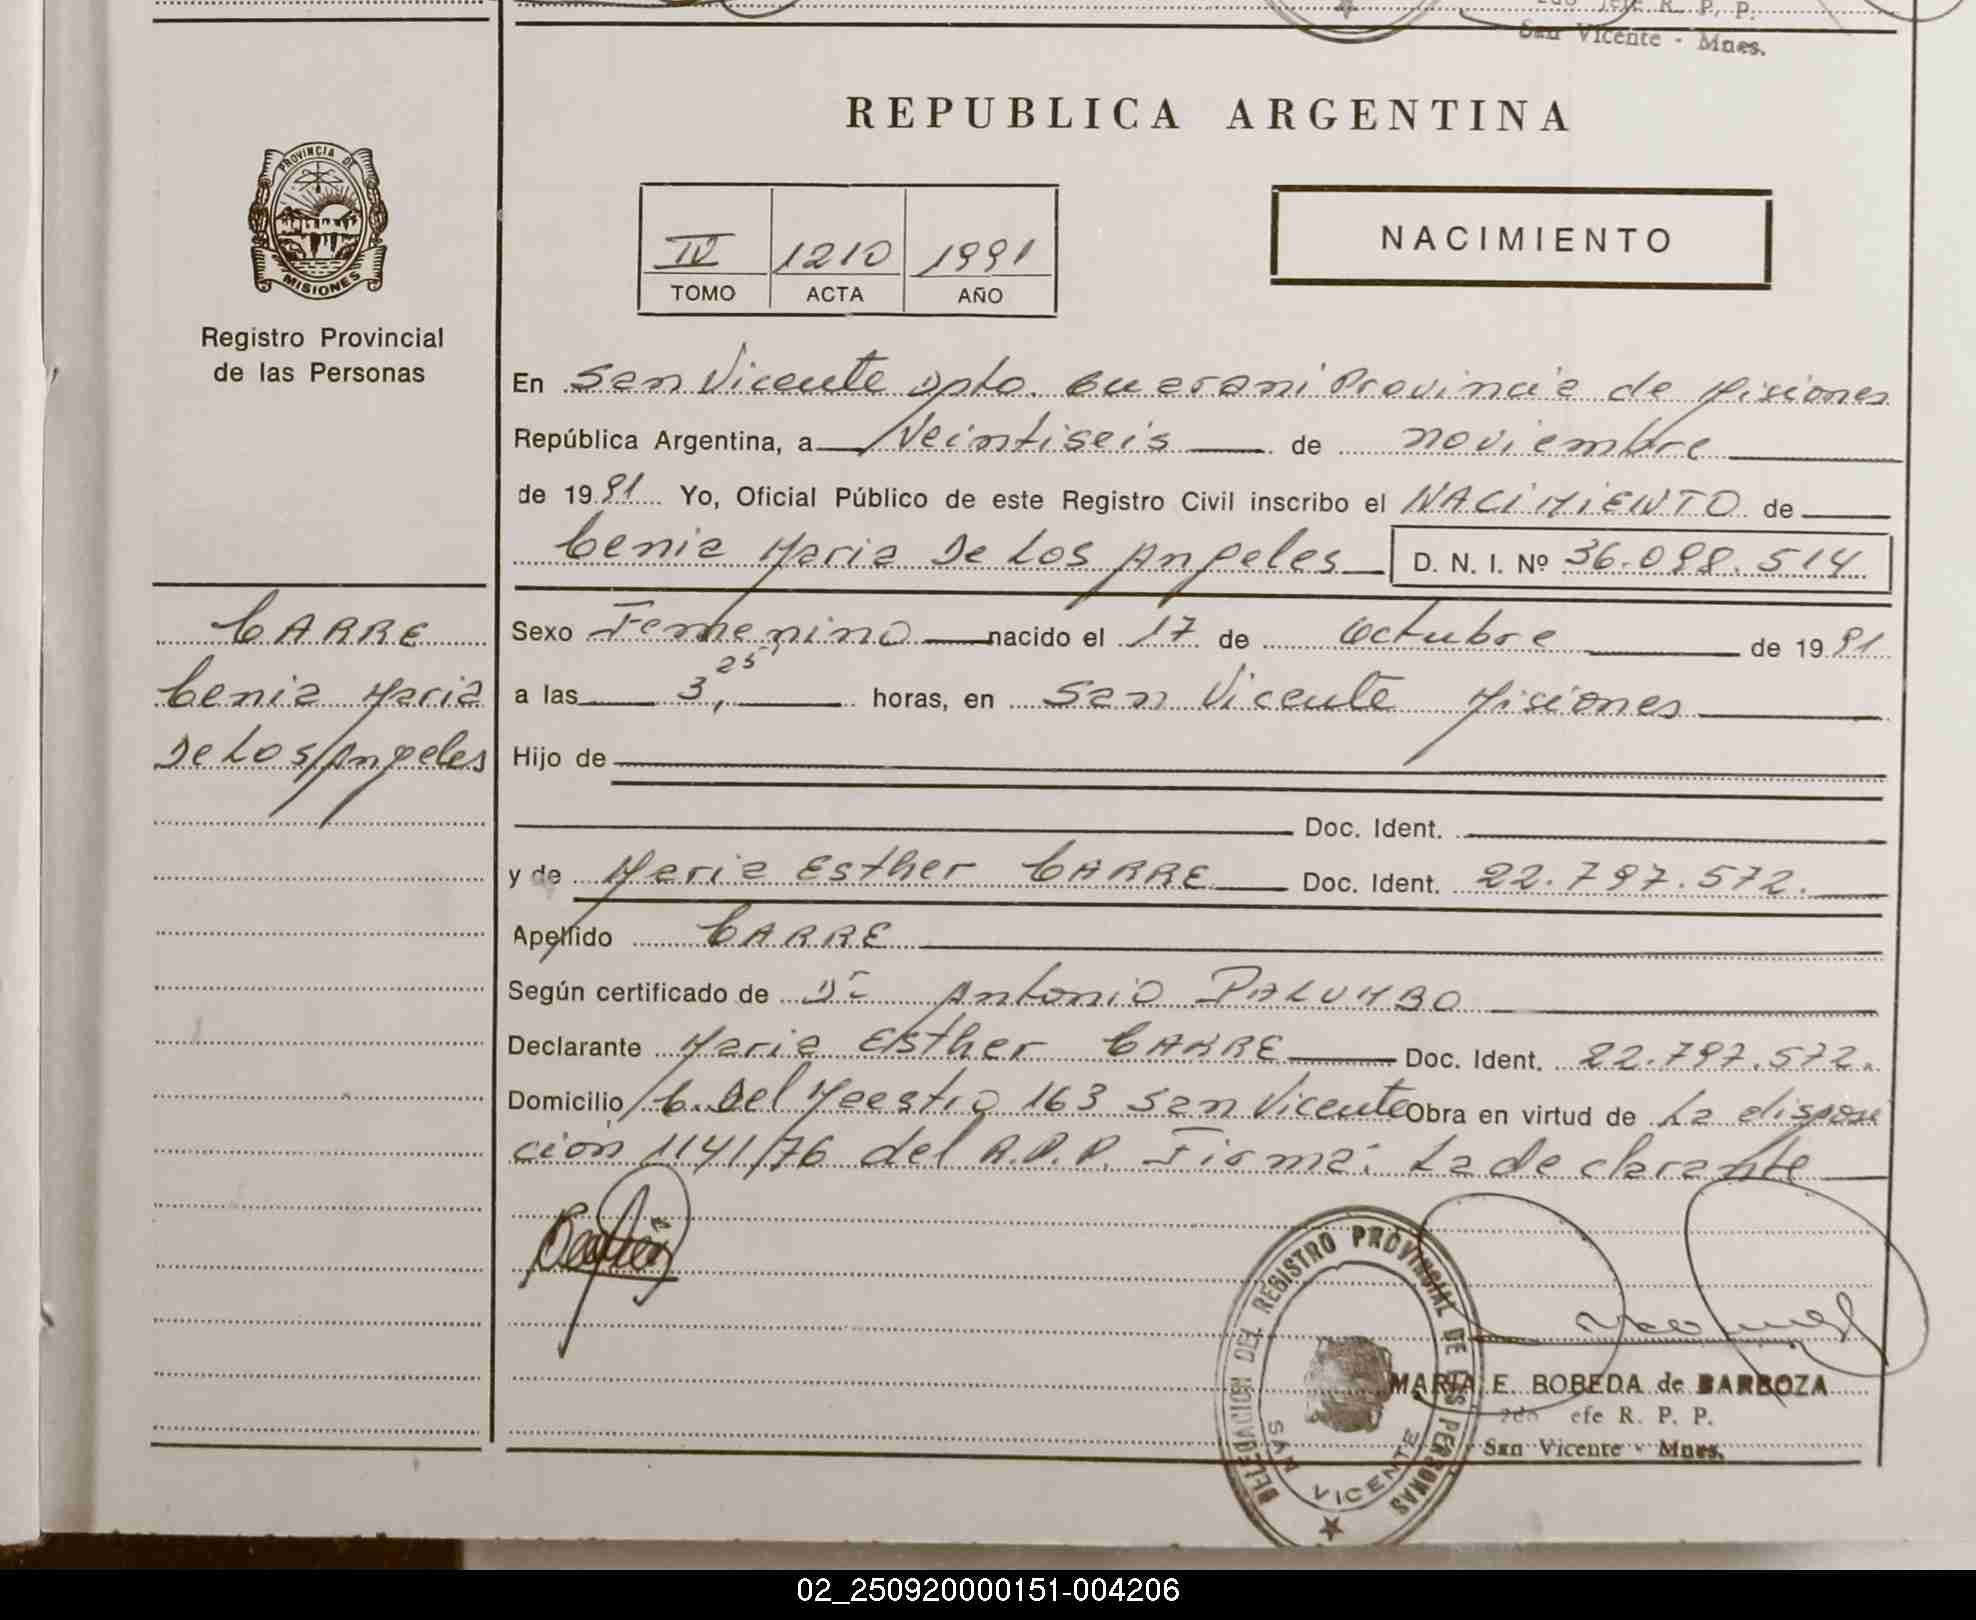 2do Jefe R. P. P.
San Vicente - Mnes.
REPUBLICA ARGENTINA
PROVINCIA DE
MISIONES
Registro Provincial
de las Personas
IV 1210 1991
TOMO ACTA AÑO
NACIMIENTO
En San Vicente Dpto. Guarani Provincia de Misiones
República Argentina, a Veintiseis de noviembre
de 1991 Yo, Oficial Público de este Registro Civil inscribo el NACIMIENTO de
Cenia Maria De Los Angeles D. N. I. Nº 36.098.514
CARRE
Cenia Maria
De Los Angeles
Sexo Femenino nacido el 17 de Octubre de 1991
a las 3,25 horas, en San Vicente Misiones
Hijo de
Doc. Ident.
y de Maria Esther CARRE Doc. Ident. 22.797.572.
Apellido CARRE
Según certificado de Dr Antonio PALUMBO
Declarante Maria Esther CARRE Doc. Ident. 22.797.572.
Domicilio C. Del Maestro 163 San Vicente Obra en virtud de La disposi
ción 1141/76 del R.P.P. Firma: La declarante
DELEGACION DEL REGISTRO PROVINCIAL DE LAS PERSONAS
SAN VICENTE
MARIA E. BOBEDA de BARBOZA
2do efe R. P. P.
San Vicente - Mnes.
02_250920000151-004206